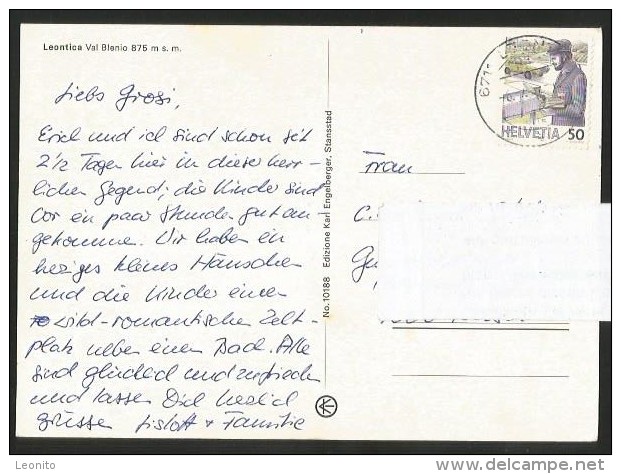 Leontica Val Blenio 875 m s. m.
Liebs Grosi,
Erich und ich sind schon seit
2 1/2 Tagen hier in dieser herr-
lichen Gegend; die Kinder sind
vor ein paar Stunden gut an-
gekommen. Wir haben ein
herziges kleines Häuschen
und die Kinder einen
wild-romantischen Zelt-
platz neben einem Bach. Alle
sind glücklich und zufrieden
und lassen Dich herzlich
grüssen Lislott + Familie
No. 10188 Edizione Karl Engelberger, Stansstad
671
HELVETIA 50
Frau
C.
Leonito
http://leonito.delcampe.net